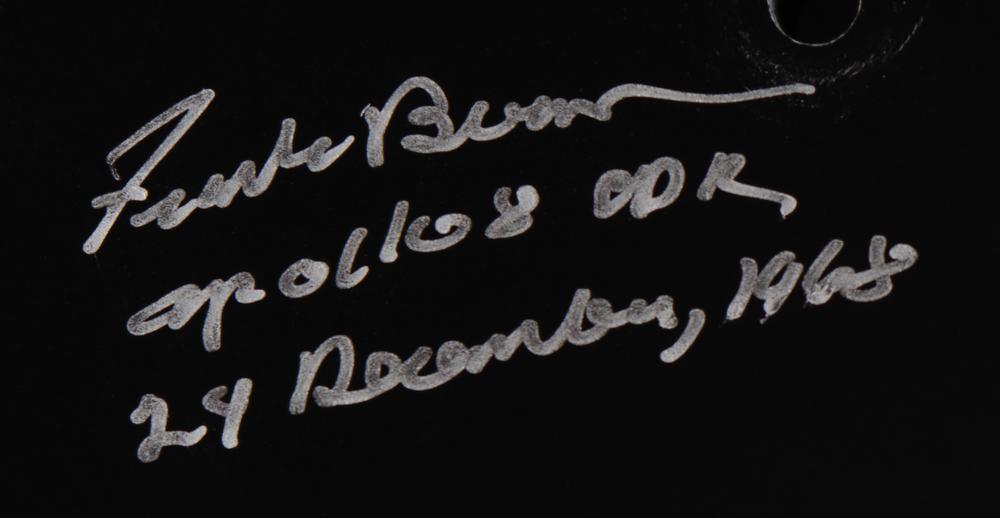 Frank Borman
Apollo 8 CDR
24 December, 1968